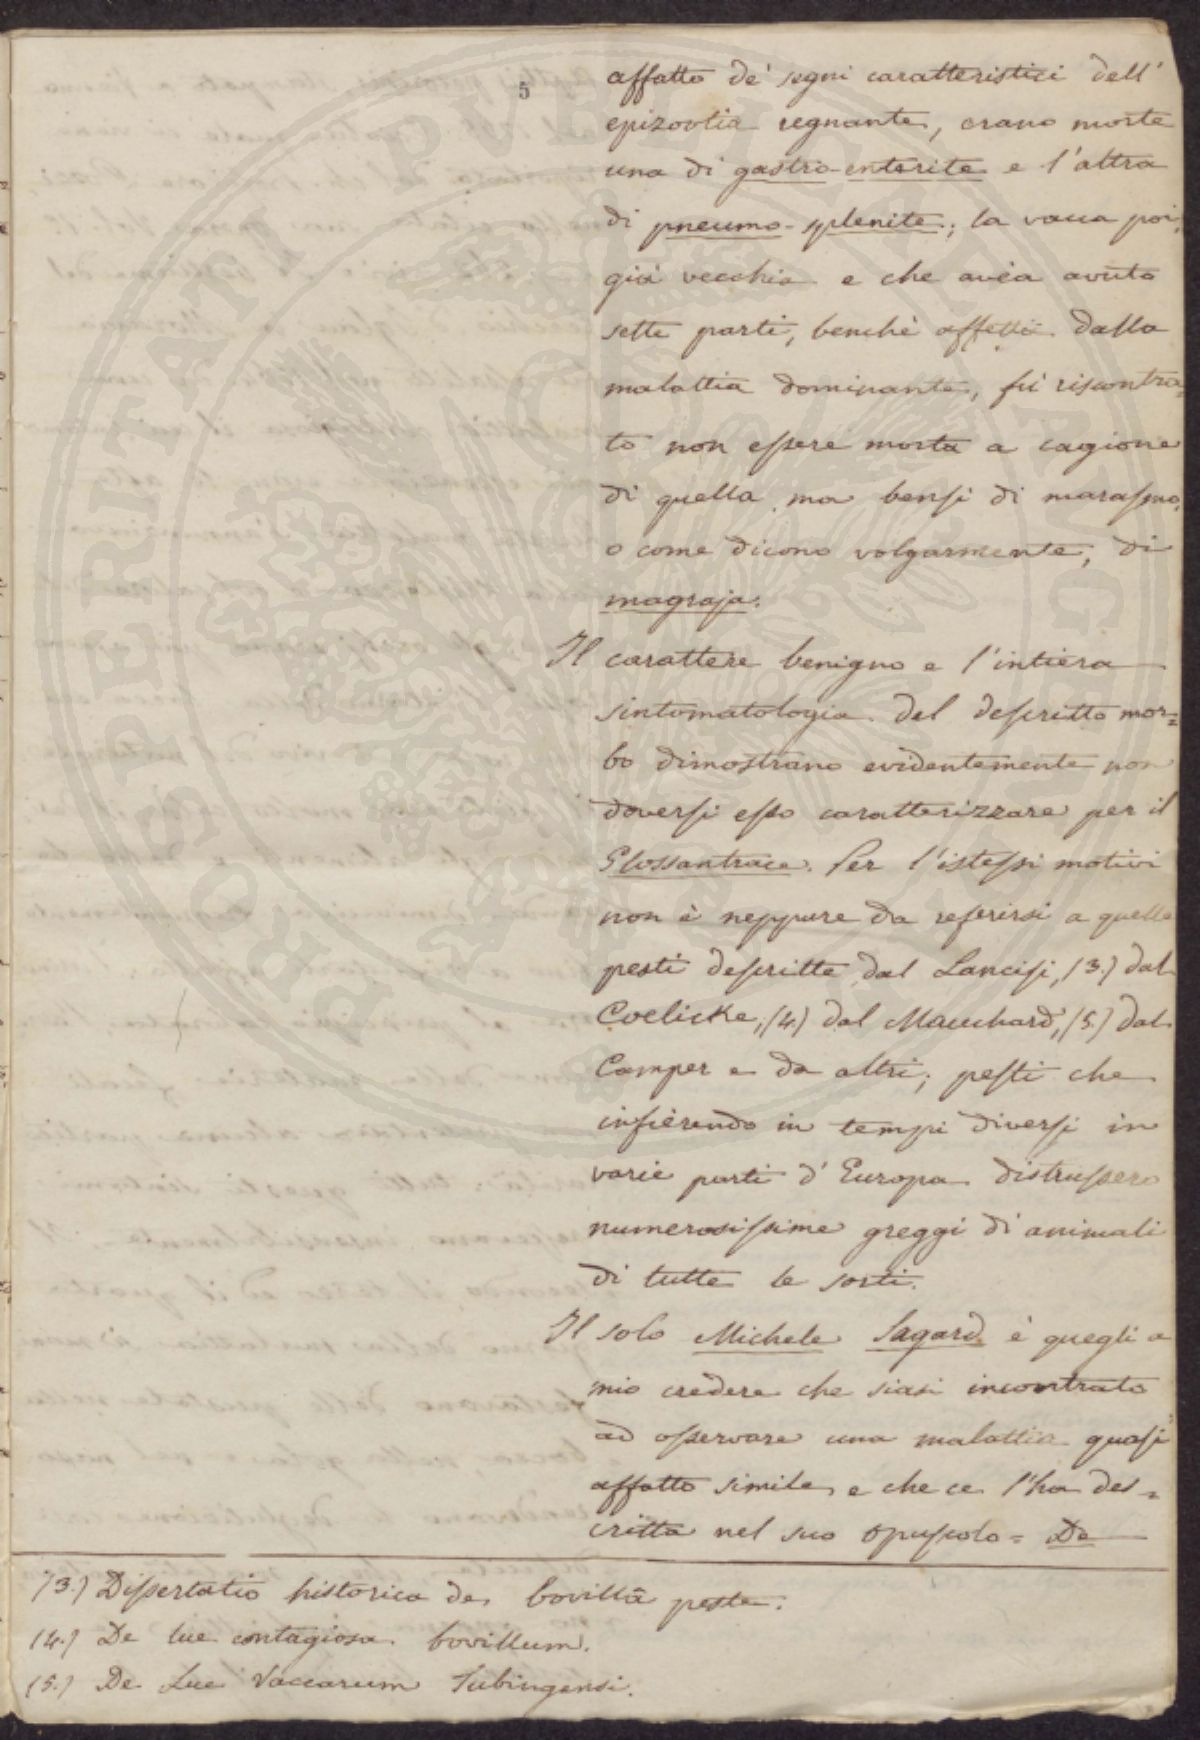 5
affatto de' segni caratteristici dell'
epizootia regnante, erano morte
una di gastro-enterite e l'altra
di pneumo-splenite; la vacca poi,
già vecchia e che avéa avuto
sette parti, benchè affetta dalla
malattia dominante, fù riscontra=
to non essere morta a cagione
di quella, ma bensi di marasmo,
o come dicono volgarmente, di
magraja.
Il carattere benigno e l'intiéra
sintomatologia del descritto mor=
bo dimostrano evidentemente non
doversi esso caratterizzare per il
Glossantrace. Per l'istessi motivi
non è neppure da referirsi a quelle
pesti descritte dal Lancisi, (3.) dal
Coelicke, (4.) dal Mauchard, (5.) dal
Camper e da altri; pesti che
infiérendo in tempi diversi in
varie parti d'Europa distrussero
numerosissime greggi di animali
di tutte le sorti.
Il solo Michele Sagard è quegli a
mio credere che siasi incontrato
ad osservare una malattia quasi
affatto simile, e che ce l'ha des=
critta nel suo opuscolo = De
(3.) Dissertatio historica de bovillâ peste.
(4.) De lue contagiosa bovillum.
(5.) De Lue Vaccarum Tubingensi.
PROSPERITATI PUBLICAE